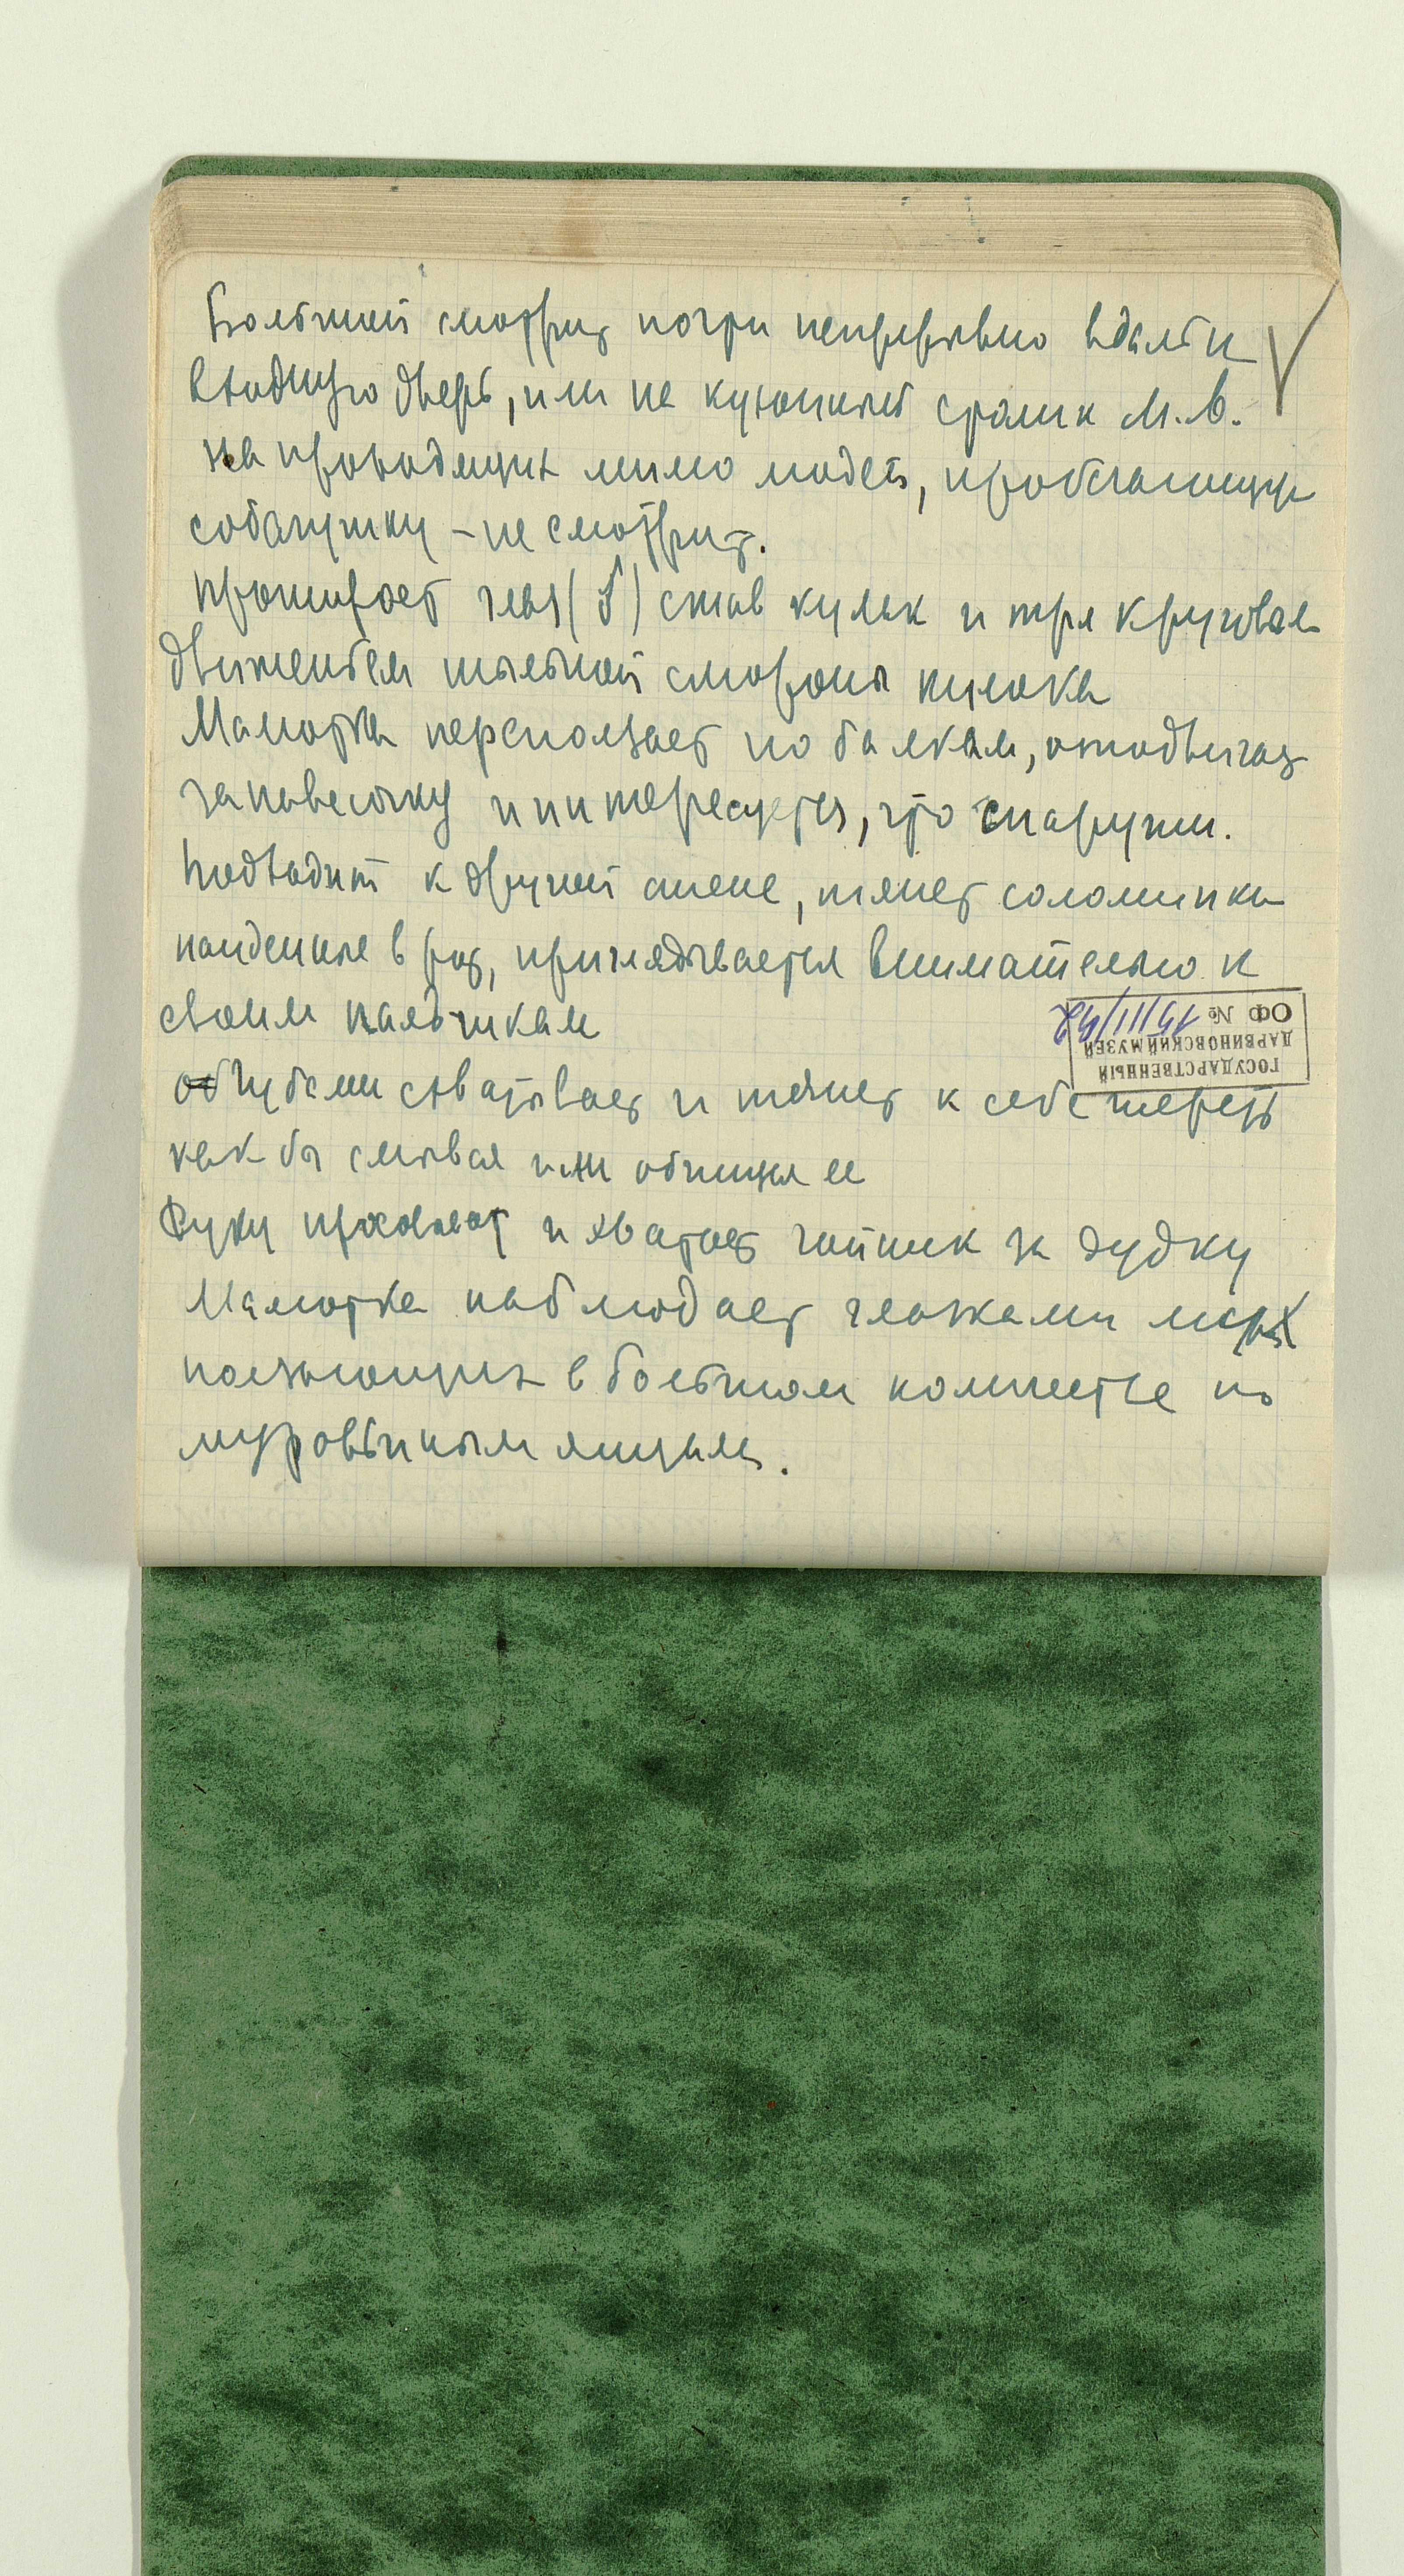 Большой смотрит почти непрерывно вдаль и
входную дверь, или на кухонный столик М.В.
на проходящих мимо людей, пробегающую
собачушку – не смотрит.
протирает глаз (♂) сжав кулак и тря круговым
движеньем тыльной стороны кулака
Малютка переползает по балкам, отодвигает
занавесочку и интересуется, что снаружи.
Подходит к другой стене, тянет соломинки
найденные в рот, приглядывается внимательно к
своим пальчикам
губами схватывает и тянет к себе шерсть
как бы смывая или обчищая ее
Руку и хватает чайник за дудку
Малютка наблюдает глазками мух
ползающих в большом количестве по
муровьиным яйцам.
ГОСУДАРСТВЕННЫЙ
ДАРВИНОВСКИЙ МУЗЕЙ
ОФ №